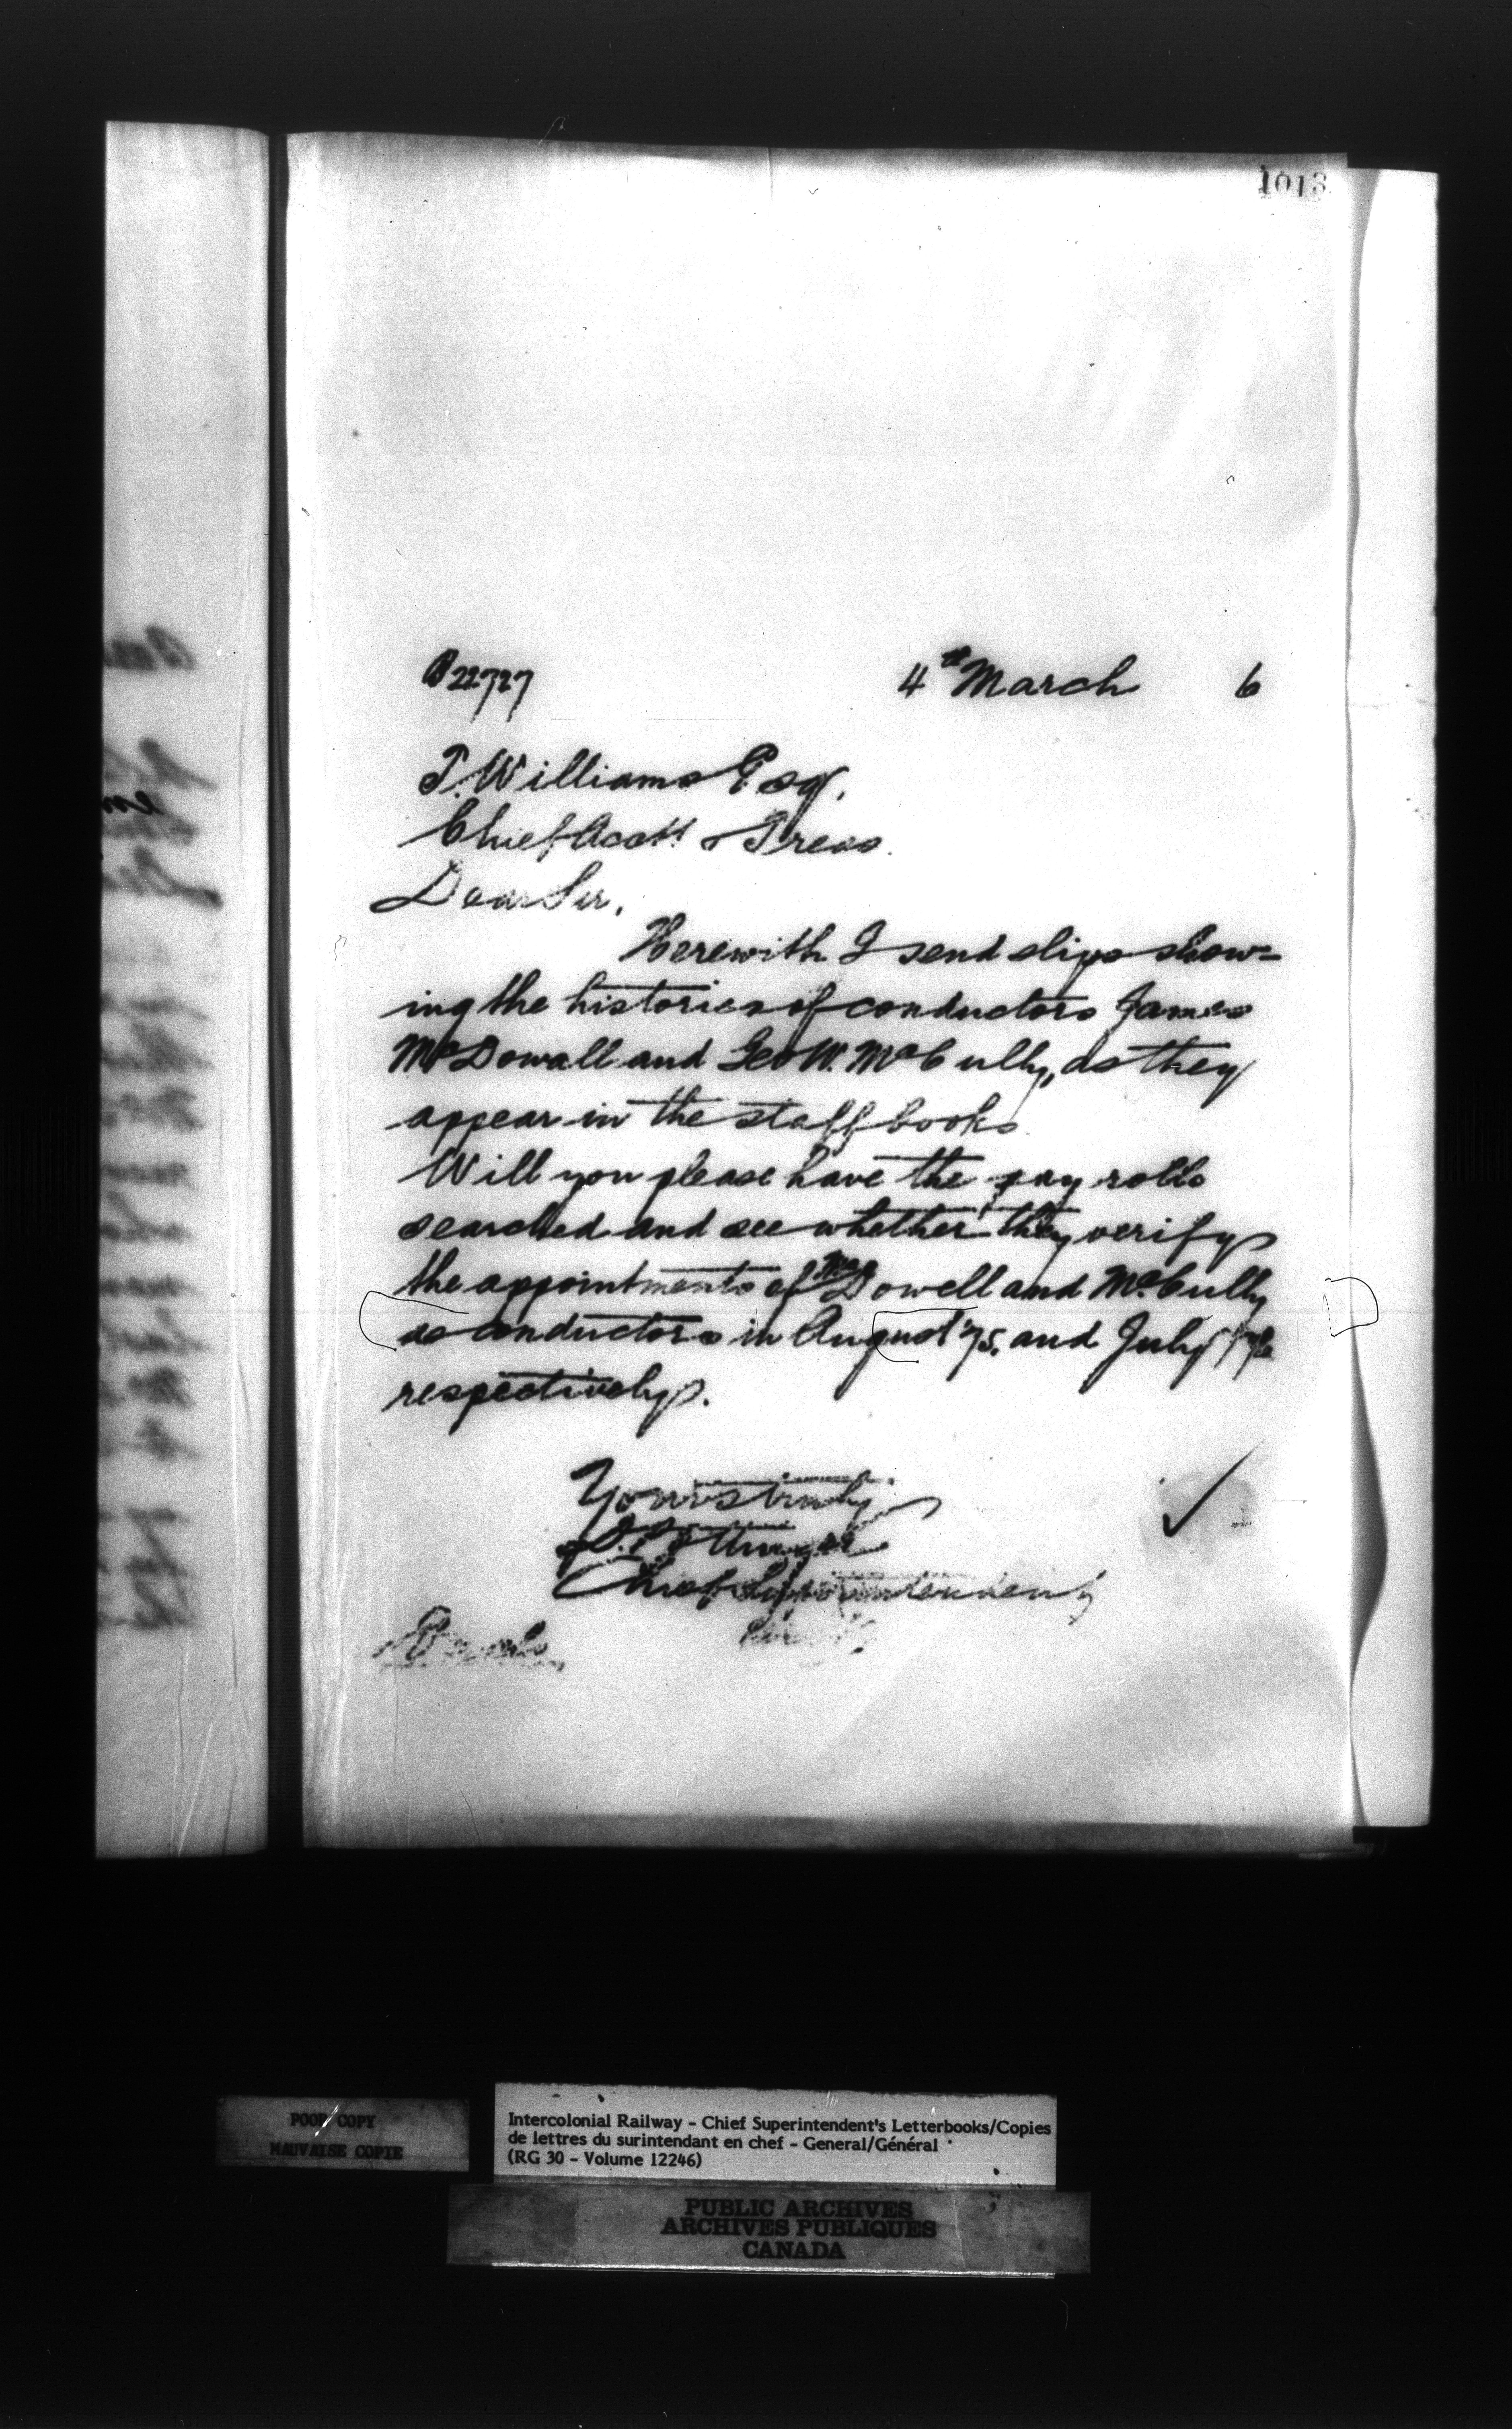 1013
B22727 4th March 6
T. Williams Esq.
Chief Acctt & Treas.
Dear Sir,
Herewith I send slips show-
ing the histories of conductors James
McDowall and Geo W. McCully, as they
appear in the staff books.
Will you please have the pay rolls
searched and see whether they verify
the appointments of McDowell and McCully
as conductors in August '75, and July '76
respectively.
Yours truly
D. Pottinger
Chief Superintendent
POOR COPY
MAUVAISE COPIE
Intercolonial Railway - Chief Superintendent's Letterbooks/Copies
de lettres du surintendant en chef - General/Général
(RG 30 - Volume 12246)
PUBLIC ARCHIVES
ARCHIVES PUBLIQUES
CANADA